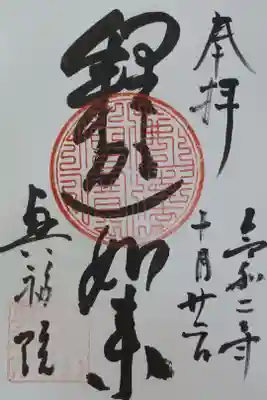 奉拝
令和二年
十月廿一日
釈迦如来
興禅院